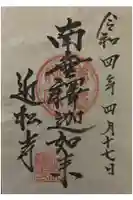 令和四年四月十七日
南無釋迦如来
近松寺